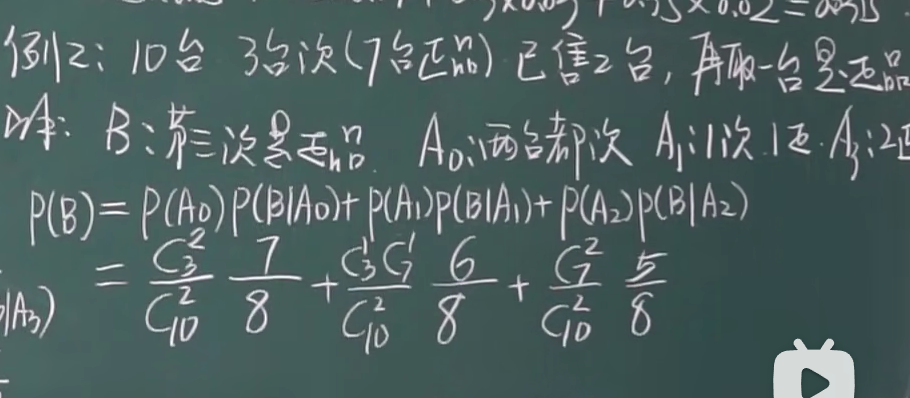 x0.05+0.35×0.02=0.0315
例2: 10台 3台次(7台正品) 已售2台, 再取一台是正品
解: B:第三次是正品 A₀:两台都次 A₁:1次1正. A₃:2正
P(B)=P(A₀)P(B|A₀)+P(A₁)P(B|A₁)+P(A₂)P(B|A₂)
= C₃²/C₁₀² 7/8 + C₃¹C₇¹/C₁₀² 6/8 + C₇²/C₁₀² 5/8
|A₃)